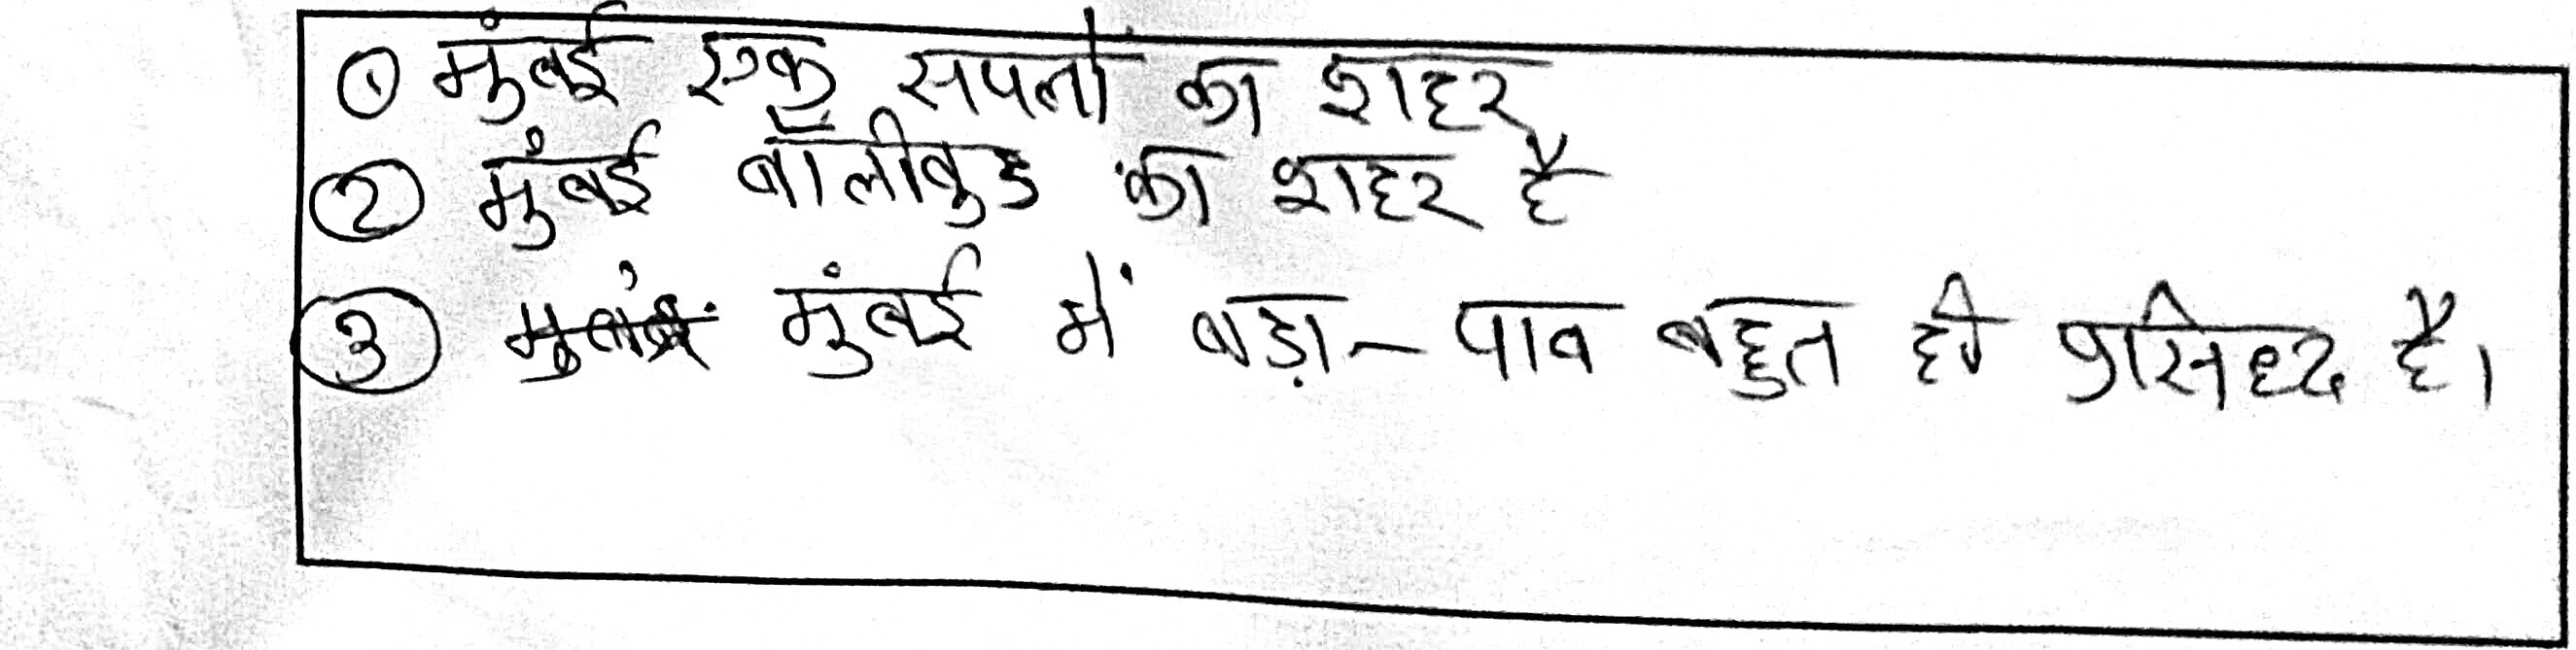 ① मुंबई एक सपनों का शहर
② मुंबई बॉलीवुड का शहर है
③ मुंबई में बड़ा-पाव बहुत ही प्रसिध्द है।